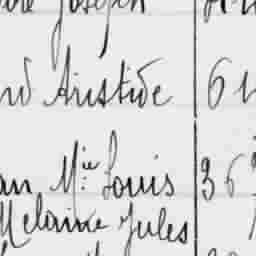 Joseph
Aristide 6
an M.ie Louis 36
Melaine Jules